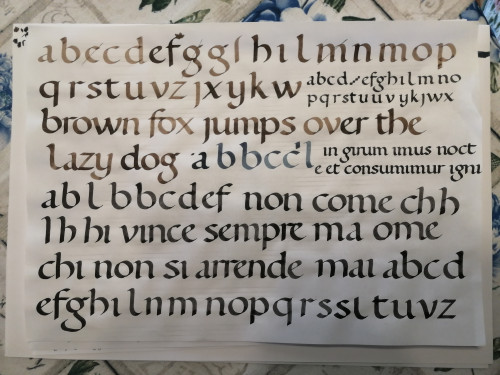 abecdefggl hilmnmop
qrstuvz jxykw
abcd efghilmno
pqrstuuvykjwx
brown fox jumps over the
lazy dog abbccl
in girum imus noct
e et consumimur igni
abl bbcdef non come chh
lh hi vince sempre ma ome
chi non si arrende mai abcd
efghilnm nopqrssltuvz